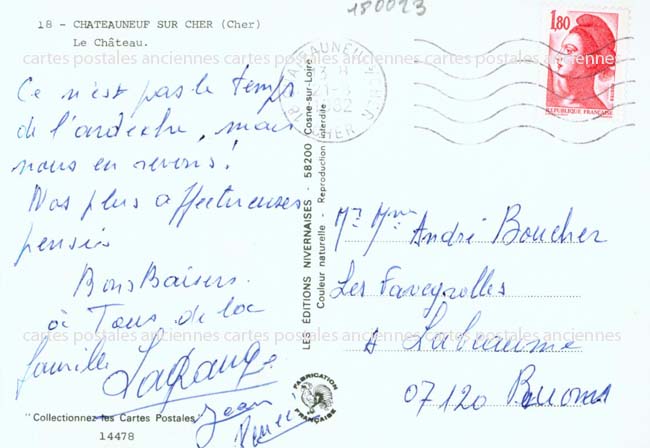 180023
18 - CHATEAUNEUF SUR CHER (Cher)
Le Château.
cartes postales anciennes cartes postales anciennes cartes postales anciennes
Ce n'est pas le temps
de l'ardèche, mais
nous en revons!
Nos plus affectueuses
pensées
Bons Baisers
à Tous de la
famille Lagrange
Jean
"Collectionnez les Cartes Postales"
14478
LES ÉDITIONS NIVERNAISES - 58200 Cosne-sur-Loire
Couleur naturelle - Reproduction interdite
CHATEAUNEUF
CHER
1,80
REPUBLIQUE FRANÇAISE
Mr Mme André Boucher
Les Faveyrolles
à Labeaume
07120 Ruoms
FABRICATION
FRANÇAISE
cartes postales anciennes cartes postales anciennes cartes postales anciennes